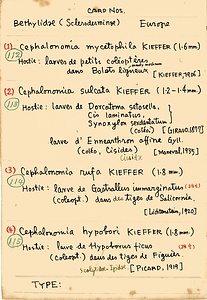 CARD NOS.
Bethylidae (Sclerodermine) Europe
(1) Cephalonomia mycetophila KIEFFER (1·6mm)
112
Hostie: larves de petits coléoptères
dans Bolets ligneux [KIEFFER, 1906]
(2) Cephalonomia sulcata KIEFFER (1·2-1·4mm)
113
Hostie: larves de Dorcatoma setosella.
Cis laminatus.
Synoxylon sexdentatum
(coléo) [GIRAUD, 1889]
larve d' Ennearthron affine Gyll.
(coléo, Cisides) [Maneval, 1935]
Ciidae
(3) Cephalonomia rufa KIEFFER (1·8mm)
114
Hostie: larve de Gastrallus immarginatus
(coléopt.) dans des tiges de Salicornia,
[Lichtenstein, 1920]
(4) Cephalonomia hypobori KIEFFER (1·8mm)
115
Hostie: larve de Hypoborus ficus
(coléopt.) dans des tiges de Figuier.
[PICARD, 1919]
TYPE: